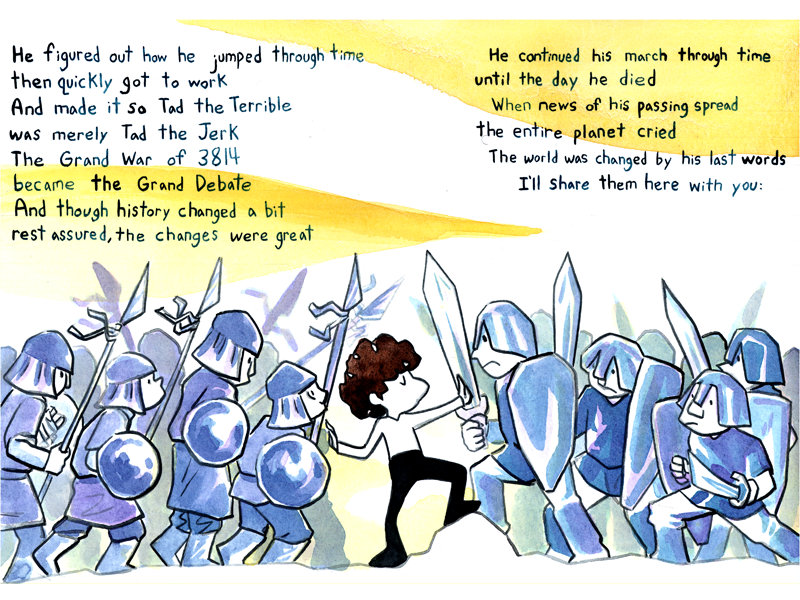 He figured out how he jumped through time
then quickly got to work
And made it so Tad the Terrible
was merely Tad the Jerk
The Grand War of 3814
became the Grand Debate
And though history changed a bit
rest assured, the changes were great
He continued his march through time
until the day he died
When news of his passing spread
the entire planet cried
The world was changed by his last words
I'll share them here with you: